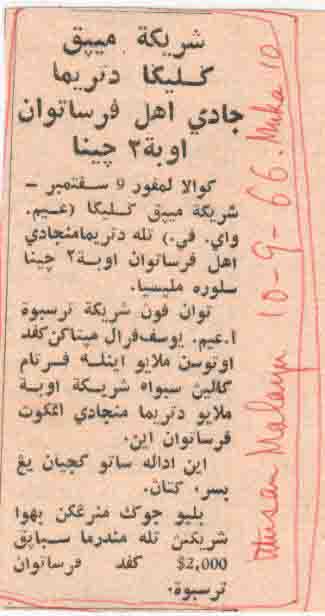 شريكة ميبق
كليڬا دتريما
جادي اهل فرساتوان
اوبة٢ چينا
كوالا لمڤور 9 سڤتمبر –
شريكة ميبق كليڬا (ءيم.
واي. في.) تله دتريمامنجادي
اهل فرساتوان اوبة٢ چينا
سلوره مليسيا.
توان ڤون شريكة ترسبوة
ا.ءيم. يوسف فرال ميتاكن كفد
اوتوسن ملايو اينله فرتام
كالين سبواه شريكة اوبة
ملايو دتريما منجادي اڠڬوت
فرساتوان اين.
اين اداله ساتو كجيان يڠ
بسر. كتاڽ.
بليو جوڬ منرڠكن بهوا
شريكتڽ تله مندرما سباڽق
$2,000 كفد فرساتوان
ترسبوة.
Utusan Malayu 10-9-66. Muka 10